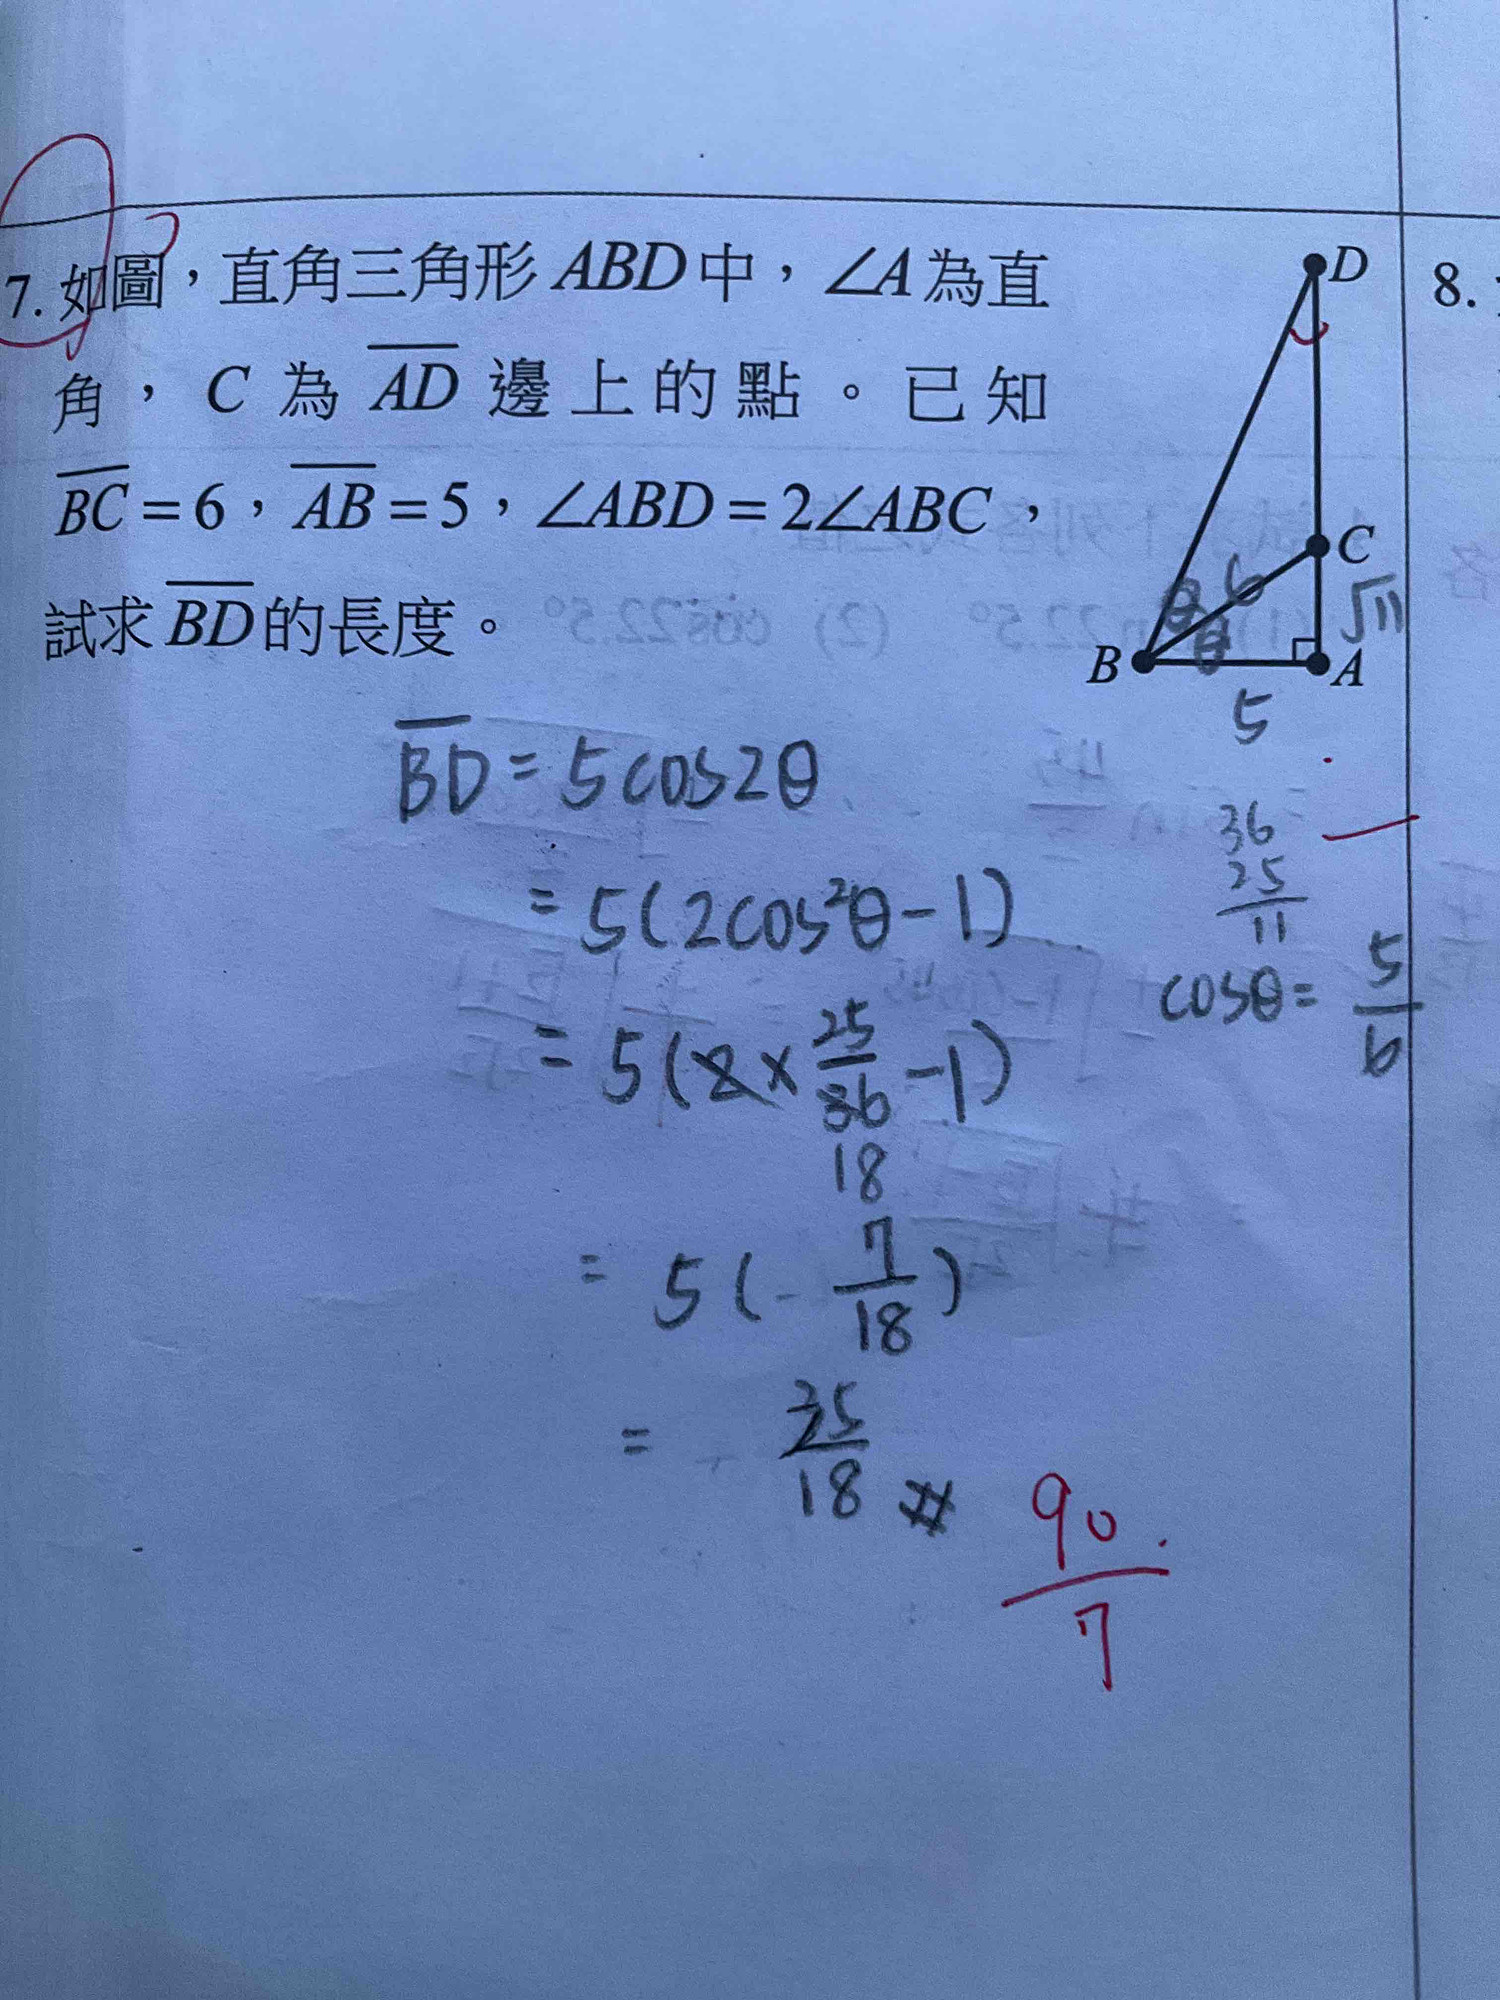 7. 如圖，直角三角形 ABD 中，∠A 為直
角，C 為 AD 邊上的點。已知
BC = 6，AB = 5，∠ABD = 2∠ABC，
試求 BD 的長度。
D
C
B
A
6
θ
θ
√11
5
8.
BD = 5cos2θ
= 5(2cos²θ-1)
= 5(2×25/36-1)
18
= 5(-7/18)
= 35/18 #
36
25
11
cosθ = 5/6
90/7